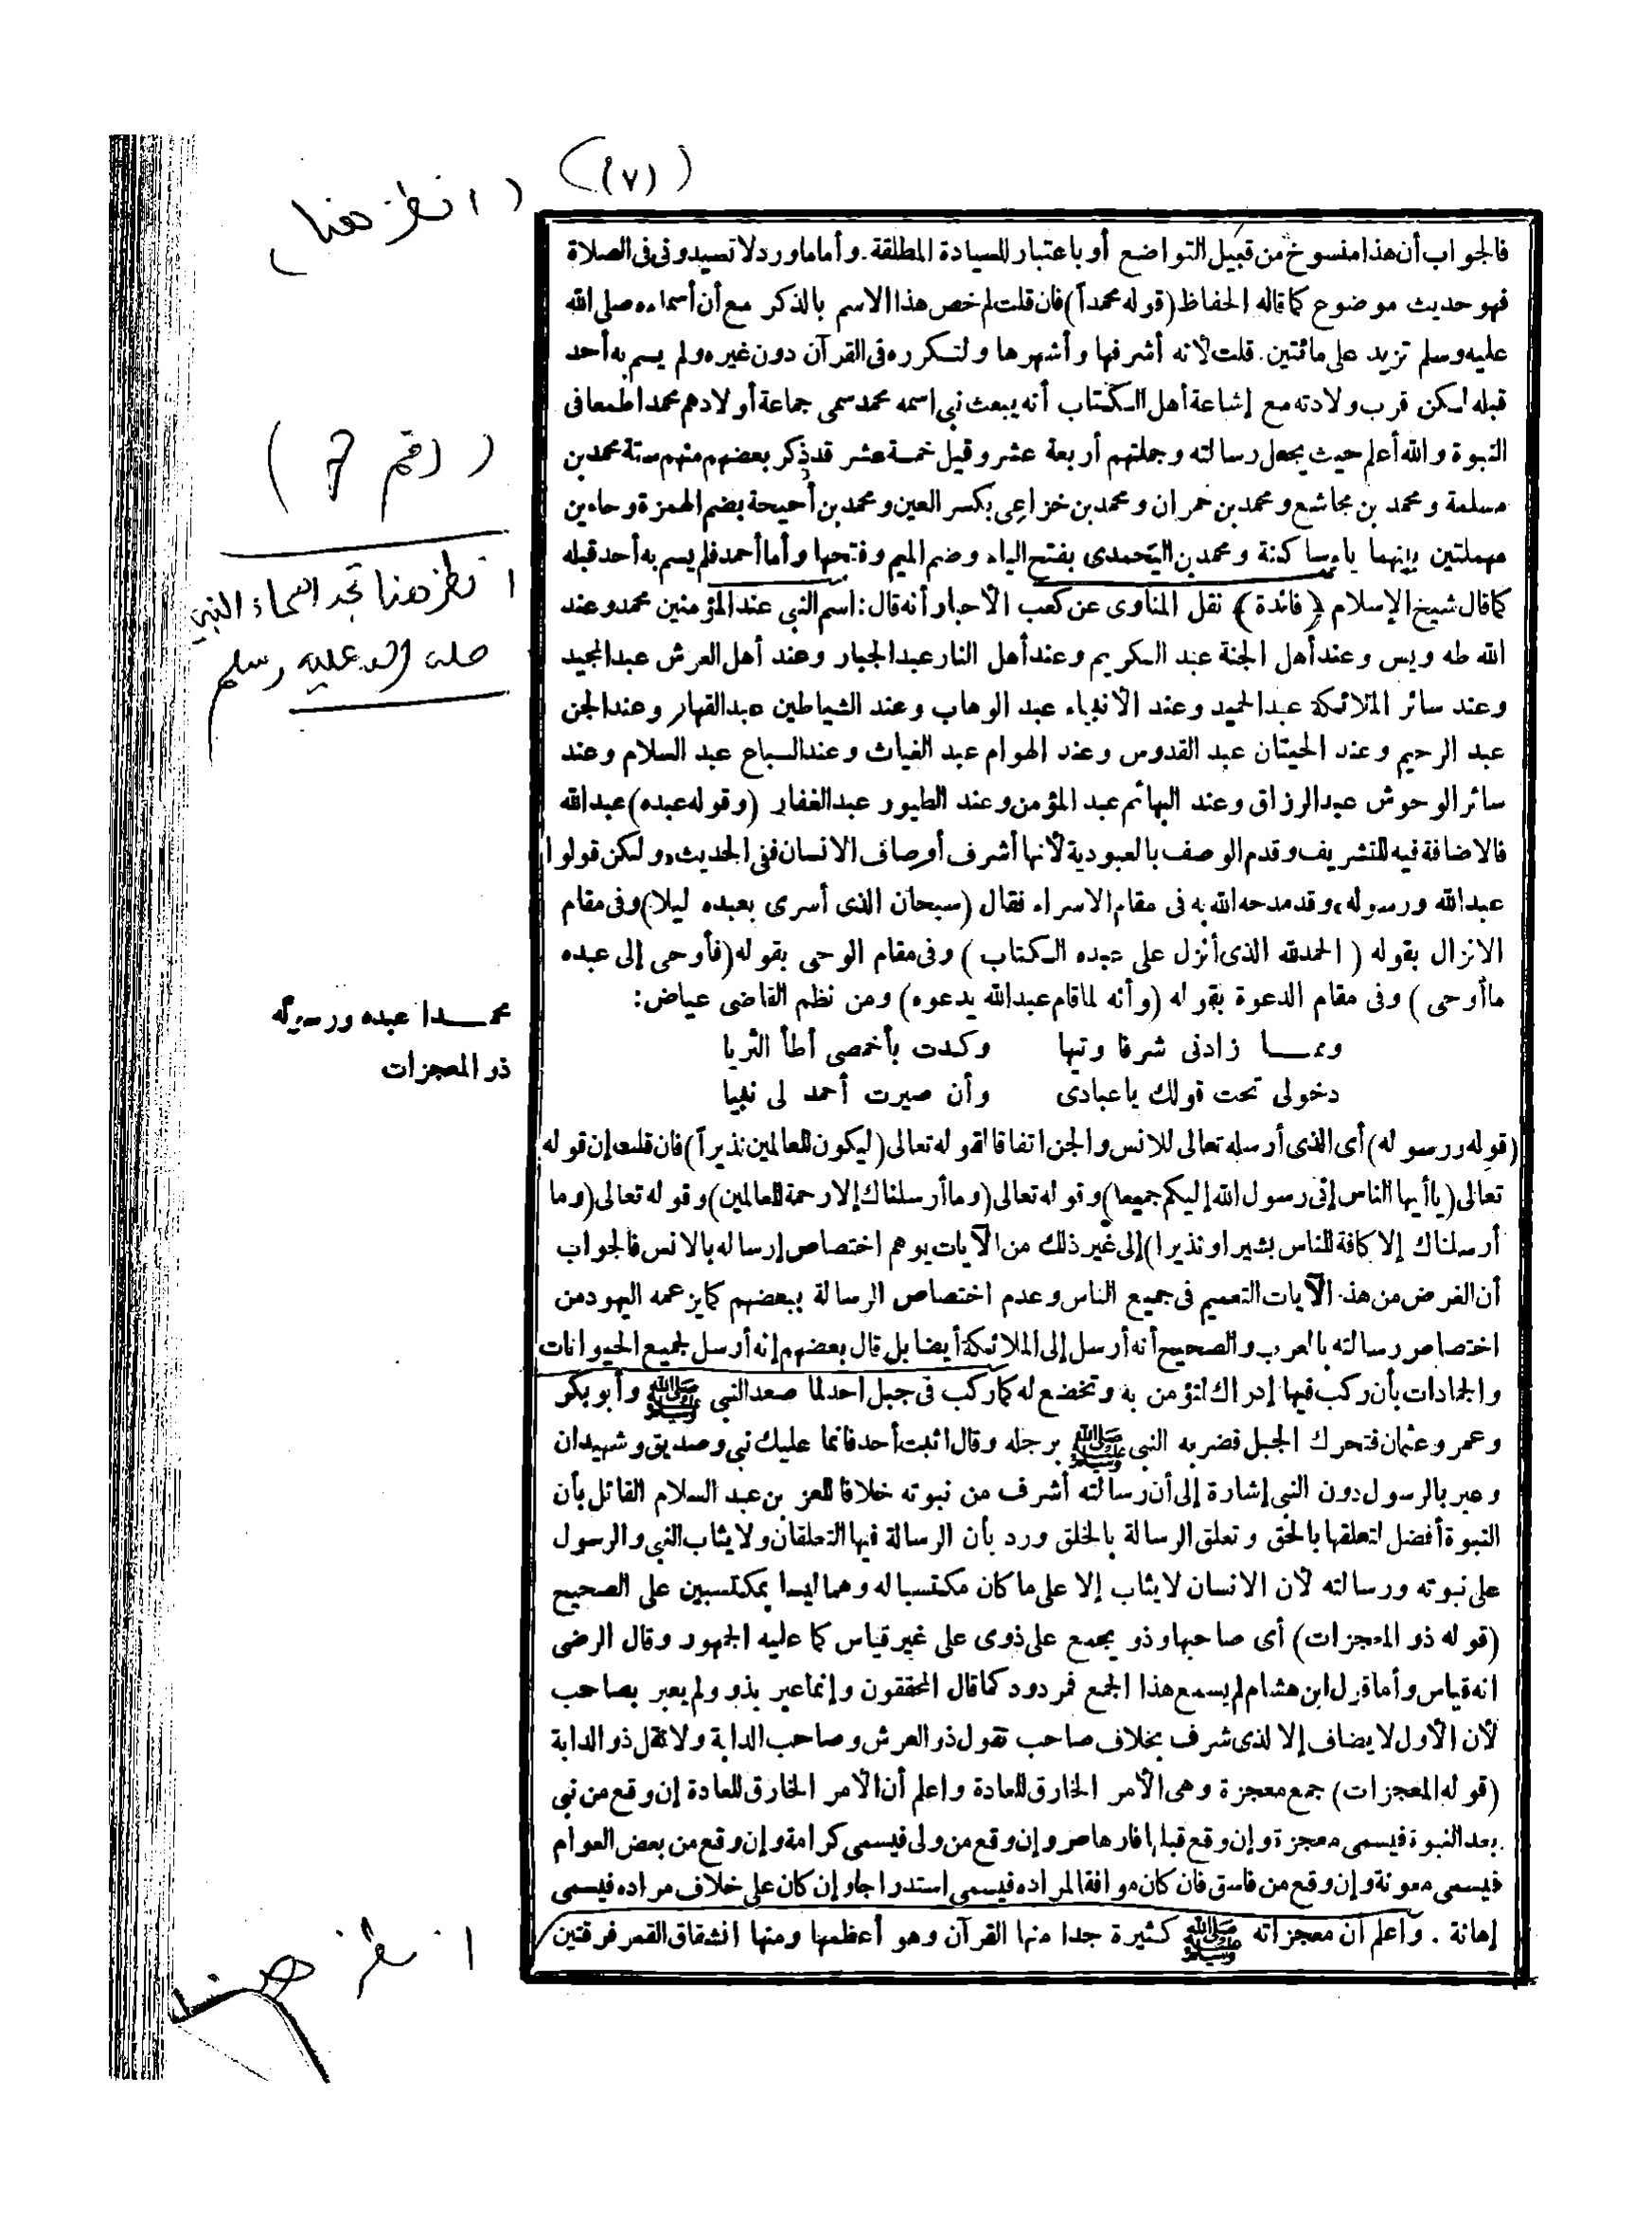 (٧)
(انظر هنا)
فالجواب أن هذا منسوخ من قبيل التواضع أو باعتبار السيادة المطلقة. وأما ما ورد لا تسيدونى فى الصلاة
فهو حديث موضوع كما قاله الحفاظ (قوله محمداً) فان قلت لم خص هذا الاسم بالذكر مع أن أسماءه صلى الله
عليه وسلم تزيد على مائتين. قلت لأنه أشرفها وأشهرها ولتكرره فى القرآن دون غيره ولم يسم به أحد
قبله لكن قرب ولادته مع إشاعة أهل الكتاب أنه يبعث نبى اسمه محمد سمى جماعة أولادهم محمدا طمعا فى
النبوة والله أعلم حيث يجعل رسالته وجملتهم أربعة عشر وقيل خمسة عشر قد ذكر بعضهم منهم ستة محمد بن
مسلمة ومحمد بن مجاشع ومحمد بن حمران ومحمد بن خزاعِى بكسر العين ومحمد بن أحيحة بضم الهمزة وحاءين
مهملتين بينهما ياء ساكنة ومحمد بن اليَحمدى بفتح الياء وضم الميم وفتحها وأما أحمد فلم يسم به أحد قبله
كما قال شيخ الإسلام (فائدة) نقل المناوى عن كعب الأحبار أنه قال: اسم النبى عند المؤمنين محمد وعند
الله طه ويس وعند أهل الجنة عبد الكريم وعند أهل النار عبد الجبار وعند أهل العرش عبد المجيد
وعند سائر الملائكة عبد الحميد وعند الأنبياء عبد الوهاب وعند الشياطين عبد القهار وعند الجن
عبد الرحيم وعند الحيتان عبد القدوس وعند الهوام عبد الغياث وعند السباع عبد السلام وعند
سائر الوحوش عبد الرزاق وعند البهائم عبد المؤمن وعند الطيور عبد الغفار (وقوله عبده) عبد الله
فالاضافة فيه للتشريف وقدم الوصف بالعبودية لأنها أشرف أوصاف الانسان ففى الحديث «ولكن قولوا
عبد الله ورسوله» وقد مدحه الله به فى مقام الاسراء فقال (سبحان الذى أسرى بعبده ليلا) وفى مقام
الانزال بقوله (الحمد لله الذى أنزل على عبده الكتاب) وفى مقام الوحى بقوله (فأوحى إلى عبده
ما أوحى) وفى مقام الدعوة بقوله (وأنه لما قام عبد الله يدعوه) ومن نظم القاضى عياض:
ومما زادنى شرفا وتيها وكدت بأخمصى أطأ الثريا
دخولى تحت قولك يا عبادى وأن صيرت أحمد لى نبيا
(قوله ورسوله) أى الذى أرسله تعالى للانس والجن اتفاقا لقوله تعالى (ليكون للعالمين نذيراً) فان قلت إن قوله
تعالى (يا أيها الناس إنى رسول الله إليكم جميعا) وقوله تعالى (وما أرسلناك إلا رحمة للعالمين) وقوله تعالى (وما
أرسلناك إلا كافة للناس بشيرا ونذيرا) إلى غير ذلك من الآيات يوهم اختصاص إرساله بالانس فالجواب
أن الغرض من هذه الآيات التعميم فى جميع الناس وعدم اختصاص الرسالة ببعضهم كما يزعمه اليهود من
اختصاص رسالته بالعرب والصحيح أنه أرسل إلى الملائكة أيضا بل قال بعضهم إنه أرسل لجميع الحيوانات
والجمادات بأن ركب فيها إدراك لتؤمن به وتخضع له كما ركب فى جبل احد لما صعد النبى ﷺ وأبو بكر
وعمر وعثمان فتحرك الجبل فضربه النبى ﷺ برجله وقال اثبت أحد فانما عليك نبى وصديق وشهيدان
وعبر بالرسول دون النبى إشارة إلى أن رسالته أشرف من نبوته خلافا للعز بن عبد السلام القائل بأن
النبوة أفضل لتعلقها بالحق وتعلق الرسالة بالخلق ورد بأن الرسالة فيها التعلقان ولا يثاب النبى والرسول
على نبوته ورسالته لأن الانسان لا يثاب إلا على ما كان مكتسبا له وهما ليسا بمكتسبين على الصحيح
(قوله ذو المعجزات) أى صاحبها وذو يجمع على ذوى على غير قياس كما عليه الجمهور وقال الرضى
انه قياس وأما قول ابن هشام لم يسمع هذا الجمع فمردود كما قال المحققون وإنما عبر بذو ولم يعبر بصاحب
لأن الأول لا يضاف إلا لذى شرف بخلاف صاحب تقول ذو العرش وصاحب الدابة ولا تقل ذو الدابة
(قوله المعجزات) جمع معجزة وهى الأمر الخارق للعادة واعلم أن الأمر الخارق للعادة إن وقع من نبى
بعد النبوة فيسمى معجزة وإن وقع قبلها فارهاص وإن وقع من ولى فيسمى كرامة وإن وقع من بعض العوام
فيسمى معونة وإن وقع من فاسق فان كان موافقا لمراده فيسمى استدراجا وإن كان على خلاف مراده فيسمى
إهانة . واعلم أن معجزاته ﷺ كثيرة جدا منها القرآن وهو أعظمها ومنها انشقاق القمر فرقتين
(رقم ٣)
انظر هنا تجد اسماء النبي
صلى الله عليه وسلم
محمدا عبده ورسوله
ذو المعجزات
انظر هنا